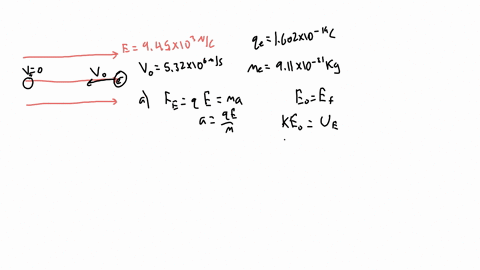 E = 9.45x10³ N/C
qe = 1.602x10⁻¹⁹C
V=0
V₀
V₀ = 5.32x10⁶ m/s
me = 9.11x10⁻³¹ Kg
a) FE = qE = ma
E₀ = Ef
a = qE/m
KE₀ = UE